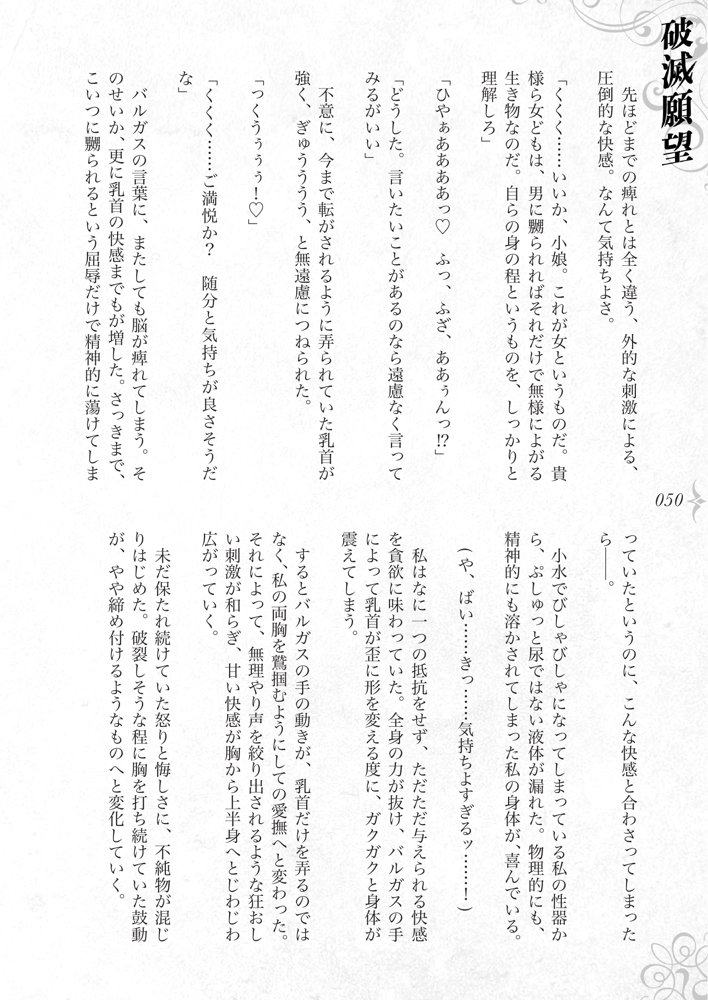 破滅願望
先ほどまでの痺れとは全く違う、外的な刺激による、
圧倒的な快感。なんて気持ちよさ。
「くくく……いいか、小娘。これが女というものだ。貴
様ら女どもは、男に嬲られればそれだけで無様によがる
生き物なのだ。自らの身の程というものを、しっかりと
理解しろ」
「ひやぁああああっ♡　ふっ、ふざ、ああぅんっ!?」
「どうした。言いたいことがあるのなら遠慮なく言って
みるがいい」
不意に、今まで転がされるように弄られていた乳首が
強く、ぎゅうううう、と無遠慮につねられた。
「っくうぅぅぅ！♡」
「くくく……ご満悦か？　随分と気持ちが良さそうだ
な」
バルガスの言葉に、またしても脳が痺れてしまう。そ
のせいか、更に乳首の快感までもが増した。さっきまで、
こいつに嬲られるという屈辱だけで精神的に蕩けてしま
050
っていたというのに、こんな快感と合わさってしまった
ら――。
小水でびしゃびしゃになってしまっている私の性器か
ら、ぷしゅっと尿ではない液体が漏れた。物理的にも、
精神的にも溶かされてしまった私の身体が、喜んでいる。
（や、ばい……きっ……気持ちよすぎるッ……！）
私はなに一つの抵抗をせず、ただただ与えられる快感
を貪欲に味わっていた。全身の力が抜け、バルガスの手
によって乳首が歪に形を変える度に、ガクガクと身体が
震えてしまう。
するとバルガスの手の動きが、乳首だけを弄るのでは
なく、私の両胸を鷲掴むようにしての愛撫へと変わった。
それによって、無理やり声を絞り出されるような狂おし
い刺激が和らぎ、甘い快感が胸から上半身へとじわじわ
広がっていく。
未だ保たれ続けていた怒りと悔しさに、不純物が混じ
りはじめた。破裂しそうな程に胸を打ち続けていた鼓動
が、やや締め付けるようなものへと変化していく。